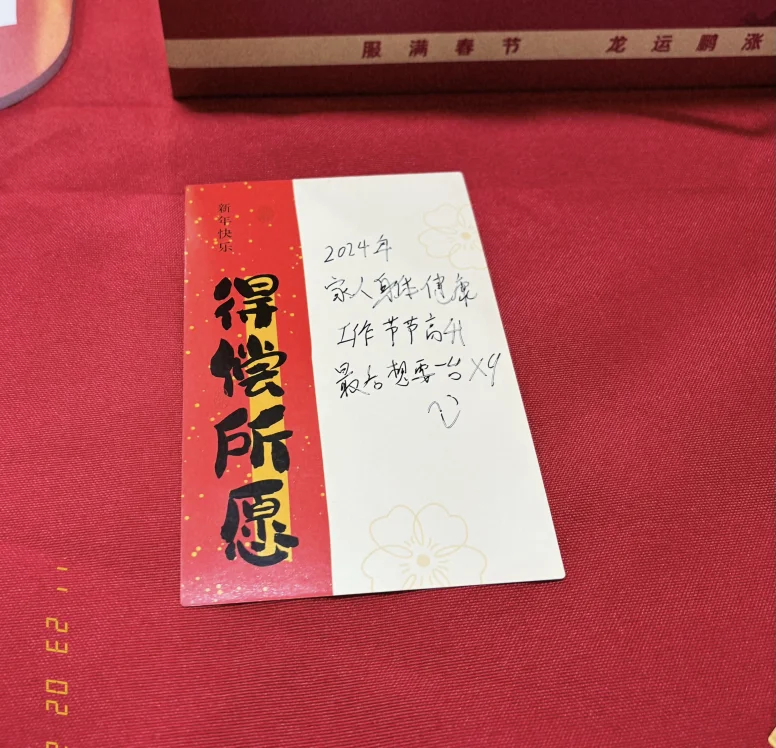 服满春节 龙运鹏涨
新年快乐
得偿所愿
2024年
家人身体健康
工作节节高升
最后想要一台X9
11 23 02 2